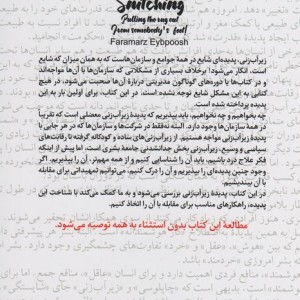 Snitching
Pulling the rug out
From somebody's foot!
Faramarz Eybpoosh
زیرآب‌زنی، پدیده‌ای شایع در همهٔ جوامع و سازمان‌هاست که به همان میزان که شایع
است، انکار می‌شود! برخلاف بسیاری از مشکلاتی که سازمان‌ها با آن‌ها مواجه‌اند
و کتاب‌ها یا دوره‌های گوناگون مدیریتی دربارهٔ آن‌ها صحبت می‌شود، در هیچ
کتابی به این مشکل شایع توجه نشده است. در این کتاب، برای اولین بار به این
پدیده پرداخته شده است.
چه بخواهیم و چه نخواهیم، باید بپذیریم که پدیدهٔ زیرآب‌زنی معضلی است که تقریباً
در همهٔ سازمان‌ها وجود دارد. البته نه‌فقط در شرکت‌ها و سازمان‌ها که در هر جایی با
پدیدهٔ زیرآب‌زنی مواجه هستیم. از زیرآب‌زنی‌های ساده و کودکانه گرفته تا رقابت‌های
سیاسی و وسیع، زیرآب‌زنی بخش جدانشدنی جامعهٔ بشری است، اما پیش از اینکه
فکر علاج درد باشیم، باید آن را شناسایی کنیم و از همه مهم‌تر، آن را بپذیریم. اگر
وجود چنین پدیده‌ای را بپذیریم و آن را درک کنیم، می‌توانیم تمهیداتی برای مقابله
با آن بیندیشیم.
در این کتاب، پدیدهٔ زیرآب‌زنی بررسی می‌شود و به ما کمک می‌کند با شناخت این
پدیده، راهکارهای مناسب برای مقابله با آن را اتخاذ کنیم.
مطالعهٔ این کتاب بدون استثناء به همه توصیه می‌شود.